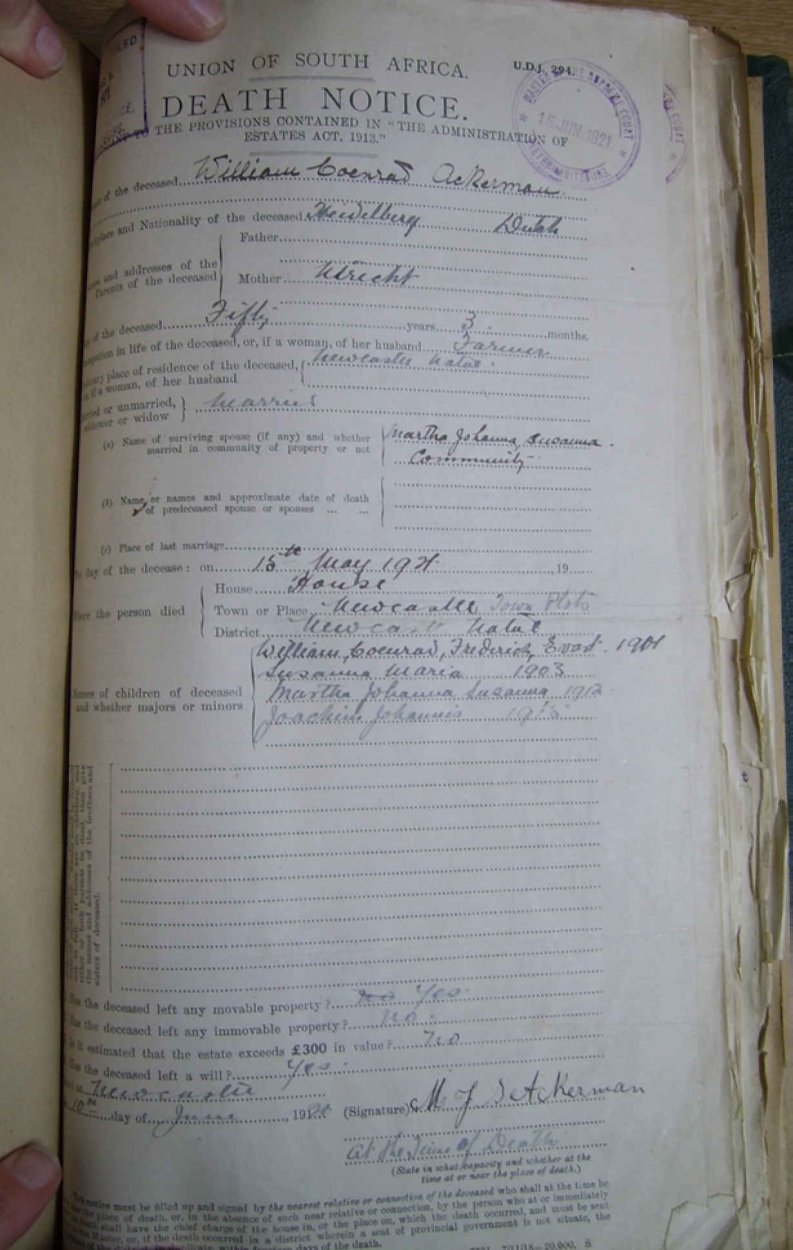 UNION OF SOUTH AFRICA.
U.D.J. 294.
DEATH NOTICE.
THE PROVISIONS CONTAINED IN "THE ADMINISTRATION OF
ESTATES ACT, 1913."
SUPREME COURT
15 JUN 1921
of the deceased William Coenrad Ackerman
and Nationality of the deceased Heidelberg Dutch
Father
and addresses of the
Parents of the deceased
Mother Utrecht
of the deceased Fifty years 3 months.
in life of the deceased, or, if a woman, of her husband Farmer
place of residence of the deceased,
if a woman, of her husband
Newcastle Natal
or unmarried,
or widow
Married
(a) Name of surviving spouse (if any) and whether
married in community of property or not
Martha Johanna Susanna.
Community
(b) Name or names and approximate date of death
of predeceased spouse or spouses ... ...
(c) Place of last marriage
day of the decease: on 15th May 1921 , 19
House House
the person died Town or Place Newcastle Town Plots
District Newcastle Natal
Names of children of deceased
and whether majors or minors
William, Coenrad, Frederick, 1901
Susanna Maria 1903
Martha Johanna Susanna 1912
Joachim Johannis
the names and addresses of the brothers and
sisters of deceased.
Has the deceased left any movable property? no Yes
Has the deceased left any immovable property? no.
Is it estimated that the estate exceeds £300 in value? No
Has the deceased left a will? Yes
at Newcastle
10th day of June , 1921
(Signature) M J S Ackerman
At the Time of Death
(State in what capacity and whether at the
time at or near the place of death.)
This notice must be filled up and signed by the nearest relative or connection of the deceased who shall at the time be
the place of death, or, in the absence of such near relative or connection, by the person who at or immediately
shall have the chief charge of the house in, or the place on, which the death occurred, and must be sent
Master, or, if the death occurred in a district wherein a seat of provincial government is not situate, the
days of the death.